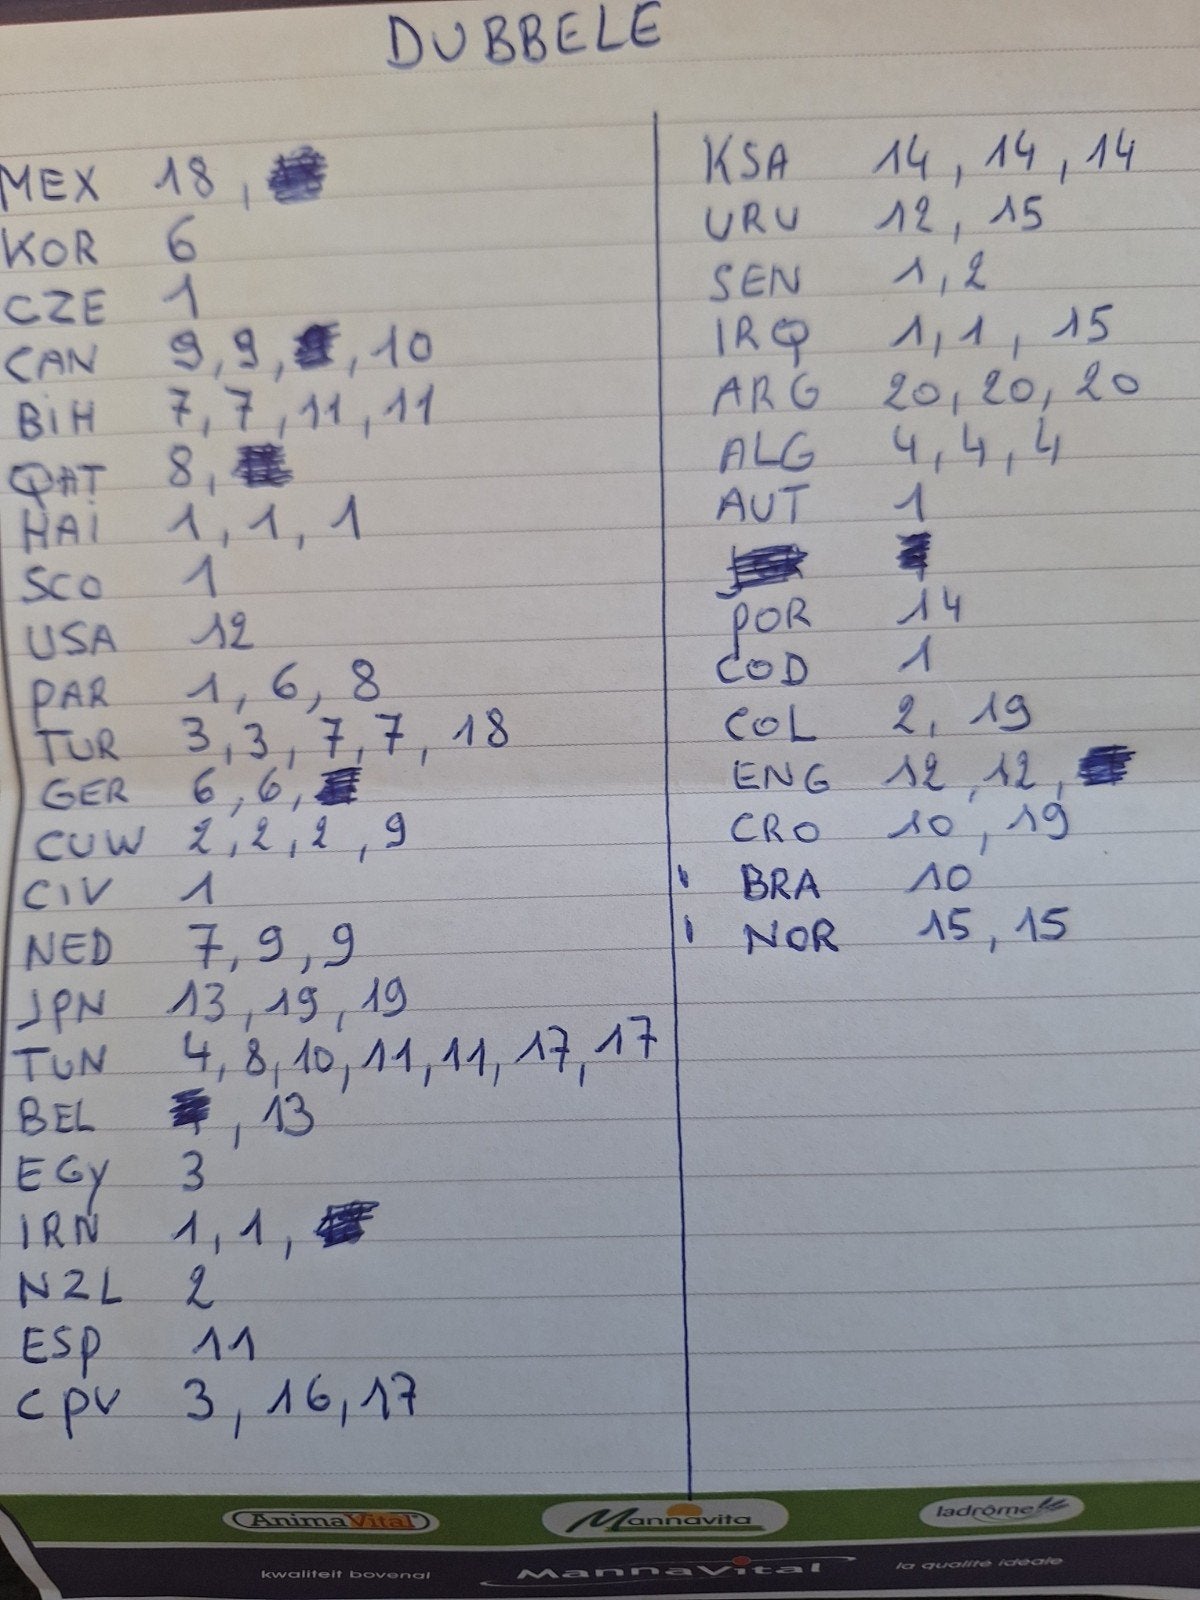 DUBBELE
MEX 18,
KOR 6
CZE 1
CAN 9, 9, , 10
BiH 7, 7, 11, 11
QAT 8,
HAi 1, 1, 1
SCO 1
USA 12
PAR 1, 6, 8
TUR 3, 3, 7, 7, 18
GER 6, 6,
CUW 2, 2, 2, 9
CIV 1
NED 7, 9, 9
JPN 13, 19, 19
TUN 4, 8, 10, 11, 11, 17, 17
BEL , 13
EGy 3
IRN 1, 1,
NZL 2
ESP 11
CPV 3, 16, 17
KSA 14, 14, 14
URU 12, 15
SEN 1, 2
IRQ 1, 1, 15
ARG 20, 20, 20
ALG 4, 4, 4
AUT 1
POR 14
COD 1
COL 2, 19
ENG 12, 12,
CRO 10, 19
BRA 10
NOR 15, 15
AnimaVital
Mannavita
ladrôme
kwaliteit bovenal
MannaVital
la qualité idéale